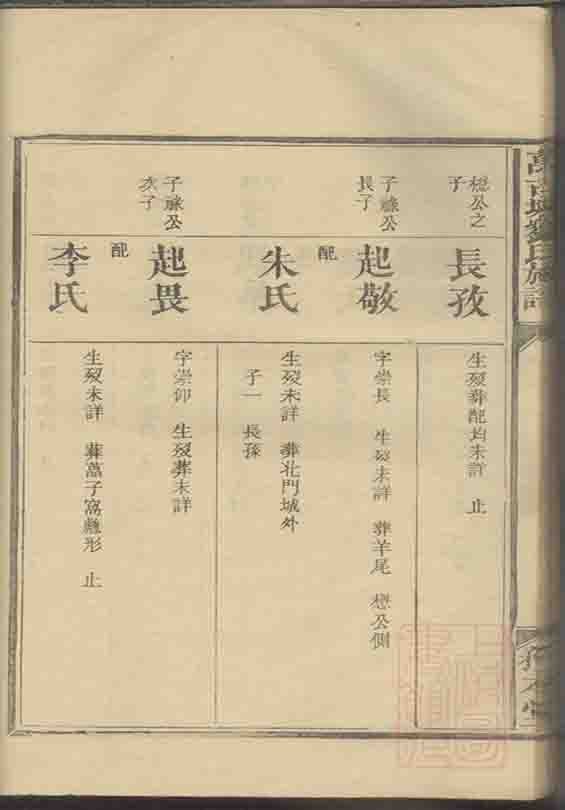 氏族譜
懋公之
子
長孜
生歿葬配均未詳 止
子祿公
長子
起敬
字崇長 生歿未詳 葬羊尾 懋公側
配
朱氏
生歿未詳 葬北門城外
子一 長孫
子祿公
次子
起畏
字崇仰 生歿葬未詳
配
李氏
生歿未詳 葬子窩形 止